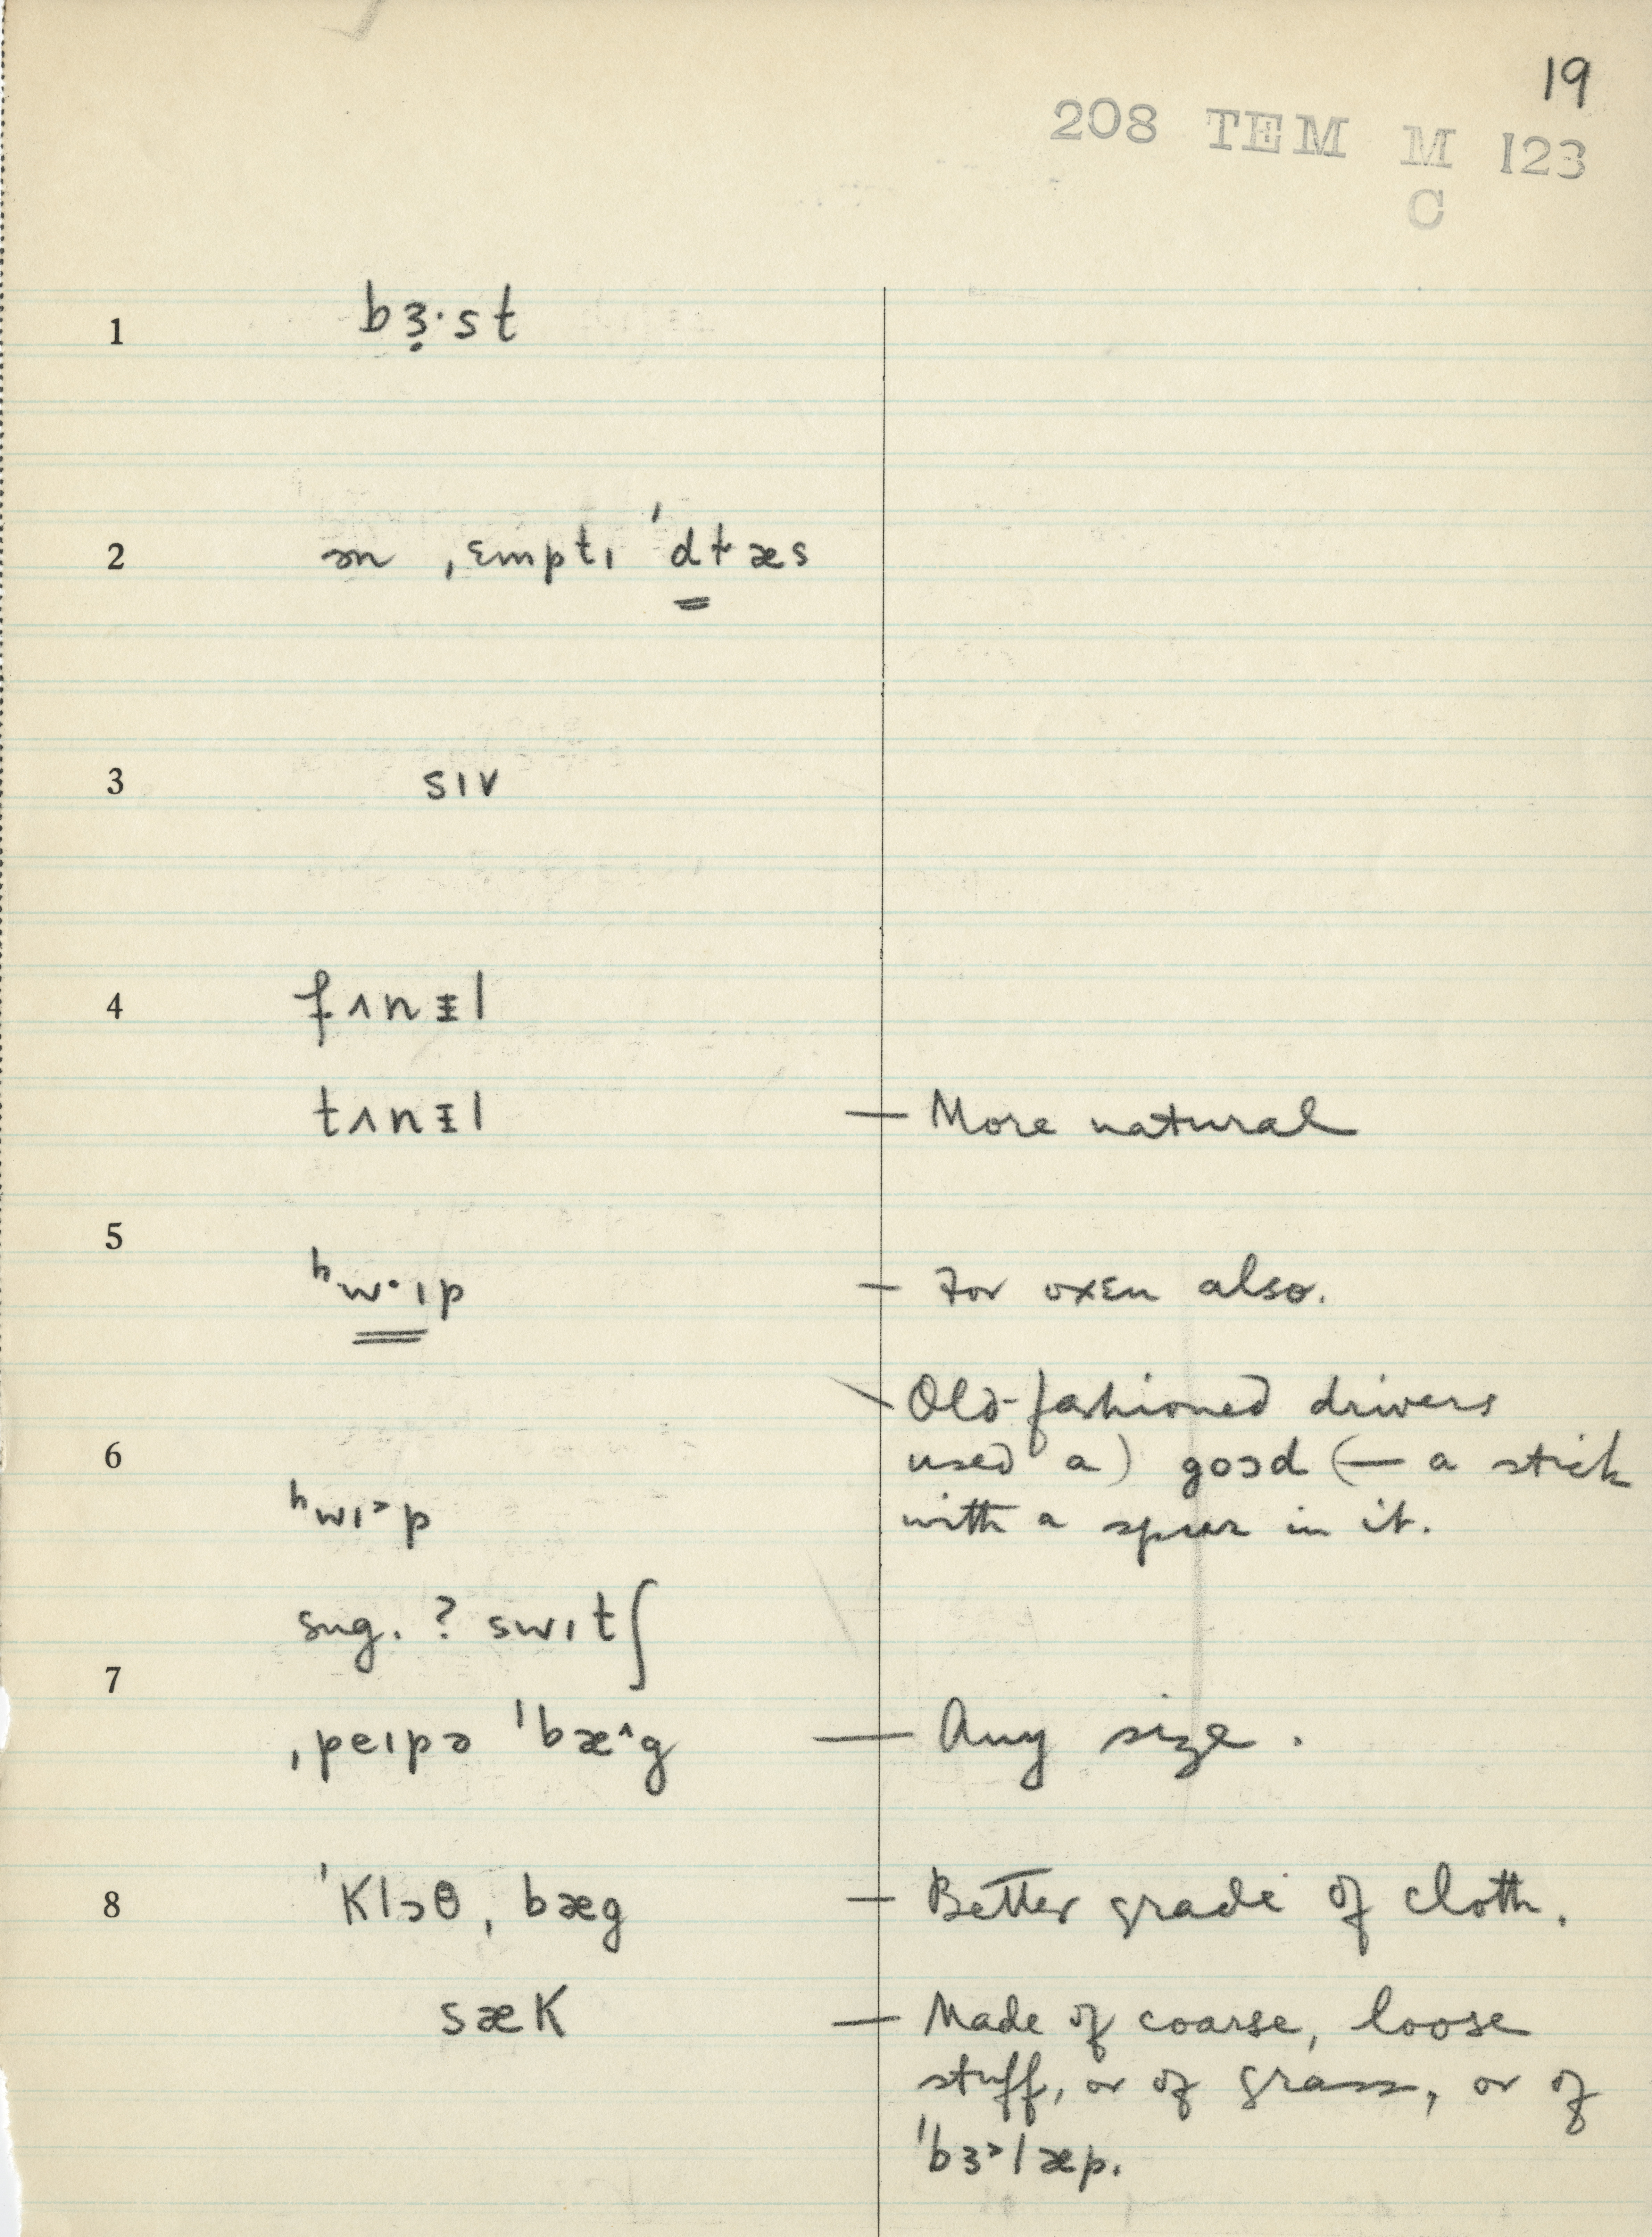 19
208 TEM M 123
C
1 bɜ̣·st
2 ən ˌɛmptɪ ˈdɫæs
3 sɪv
4 fʌnɪ̵l
tʌnɪ̵l — More natural
5
ʰw·ɪp — For oxen also.
Old-fashioned drivers
6 used a) goɔd (— a stick
ʰwɪ˃p with a spur in it.
sug. ? swɪtʃ
7
ˌpeɪpə ˈbæ^g — Any size.
8 ˈKlɔθ ˌbæg — Better grade of cloth.
sæK — Made of coarse, loose
stuff, or of grass, or of
ˈbɜ˃læp.